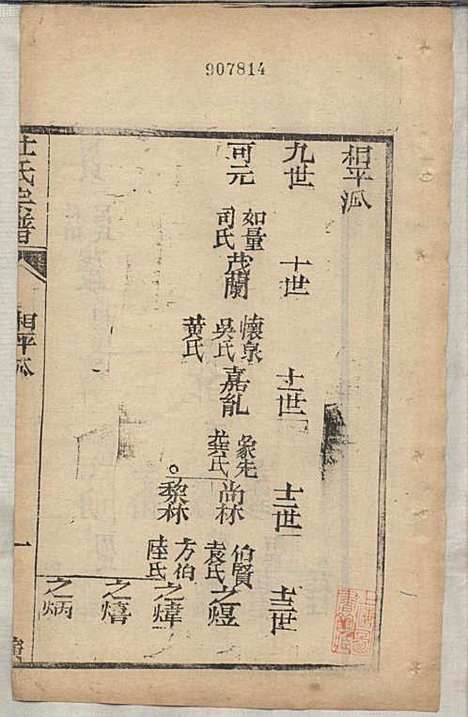 907814
相平泒
九世
十世
十一世
十二世
十三世
可元
如量
司氏
茂蘭
懷泉
吳氏
黃氏
嘉胤
象先
氏
尚林
伯賢
袁氏
之煜
黎林
方伯
陸氏
之煒
之熺
之炳
杜氏宗譜
相平泒
一